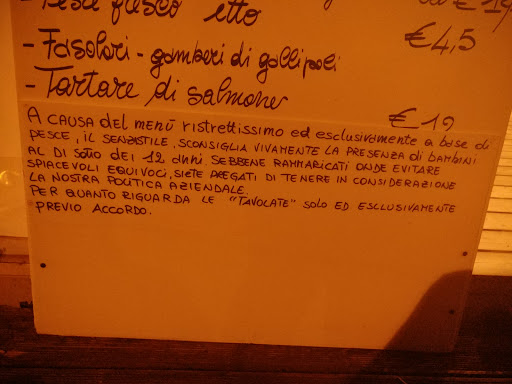 - Pesce fresco etto € 19
€ 4,5
- Fasolari - gamberi di gallipoli
- Tartare di salmone € 19
A CAUSA del menù ristrettissimo ed esclusivamente a base di
PESCE, IL SENZASTILE, SCONSIGLIA VIVAMENTE LA PRESENZA di BAMBINI
AL DI SOTTO DEI 12 ANNI. SEBBENE RAMMARICATI ONDE EVITARE
SPIACEVOLI EQUIVOCI, SIETE PREGATI DI TENERE IN CONSIDERAZIONE
LA NOSTRA POLITICA AZIENDALE.
PER QUANTO RIGUARDA LE "TAVOLATE" SOLO ED ESCLUSIVAMENTE
PREVIO ACCORDO.